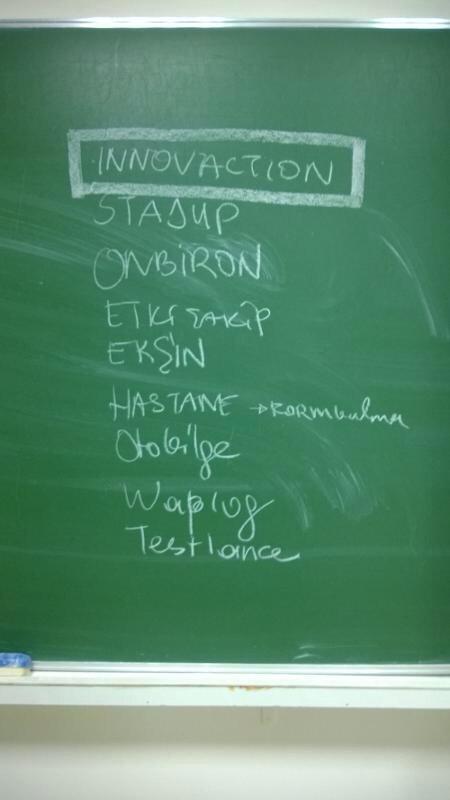 INNOVACTION
STADUP
ONBİRON
ETKİ TAKİP
EKŞİN
HASTANE →
Otobilge
Waplog
Testlance